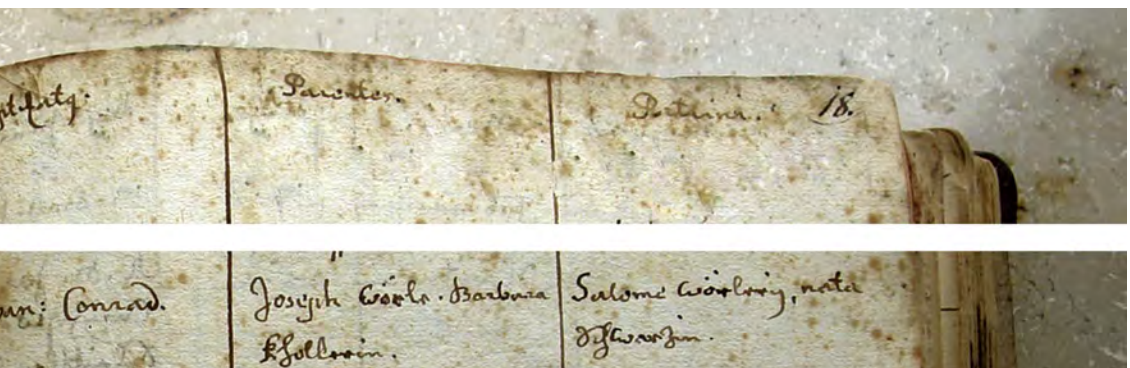 Parentes.
Patrini. 18.
Conrad.
Joseph Wörle. Barbara
Khollerin.
Salome Wörlerin, nata
Schwarzin.